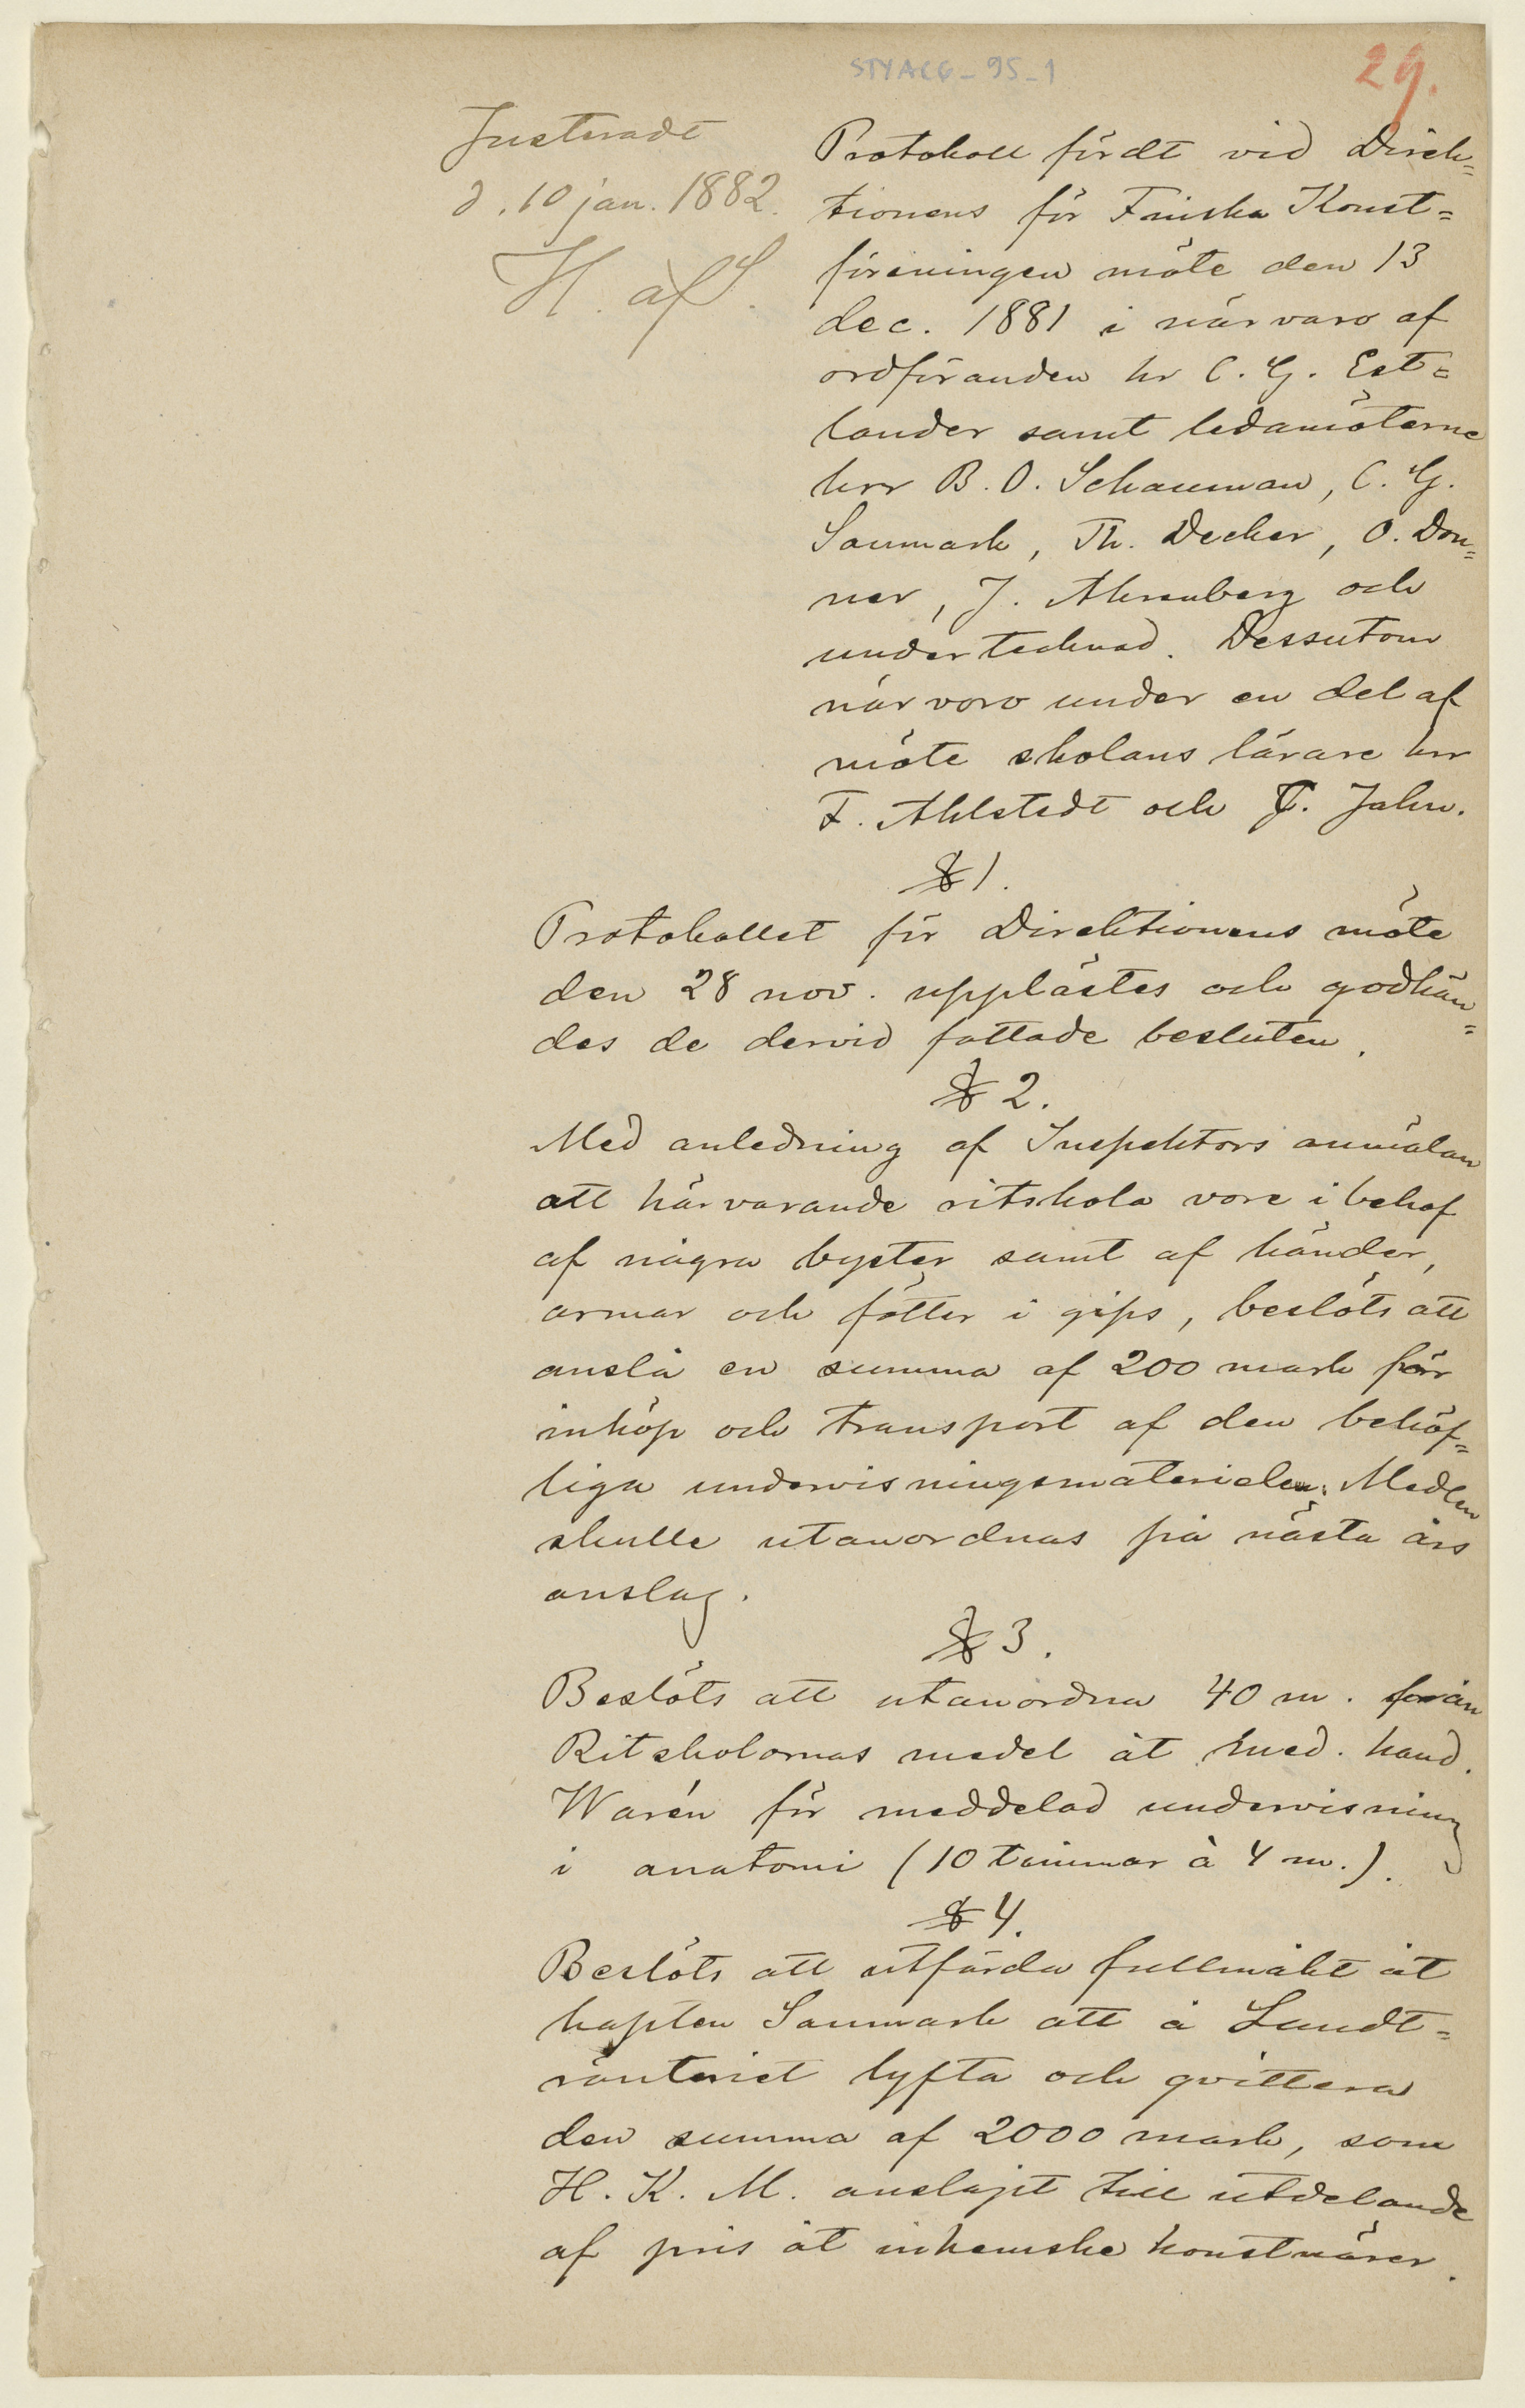 STYACG_95_1
29.
Justeradt
d. 10 jan. 1882.
H. af S.
Protokoll fördt vid Direk=
tionens för Finska Konst=
föreningen möte den 13
dec. 1881 i närvaro af
ordföranden hr C. G. Est=
lander samt ledamöterne
hrr B. O. Schauman, C. G.
Sanmark, Th. Decker, O. Don=
ner, J. Ahrenberg och
undertecknad. Dessutom
närvoro under en del af
möte skolans lärare hrr
F. Ahlstedt och C. Jahn.
§ 1.
Protokollet för Direktionens möte
den 28 nov. upplästes och godkän=
des de dervid fattade besluten.
§ 2.
Med anledning af Inspektors anmälan
att härvarande ritskola vore i behof
af några byster samt af händer,
armar och fötter i gips, beslöts att
anslå en summa af 200 mark för
inköp och transport af den behöf=
liga undervisningsmaterielen. Medlen
skulle utanordnas på nästa års
anslag.
§ 3.
Beslöts att utanordna 40 m. från
Ritskolornas medel åt med. kand.
Warén för meddelad undervisning
i anatomi (10 timmar à 4 m.).
§ 4.
Beslöts att utfärda fullmakt åt
kapten Sanmark att å Landt=
ränteriet lyfta och qvittera
den summa af 2000 mark, som
H. K. M. anslagit till utdelande
af pris åt inhemska konstnärer.